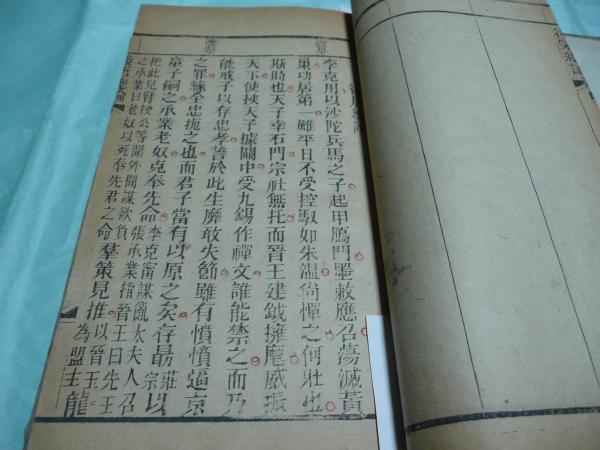 李克用以沙陀兵馬之子起甲鴈門墨敕應召蕩滅黃
巢功居第一雖平日不受控馭如朱溫尙憚之何壯也
斯時也天子幸石門宗社無托而晉王建鉞擁麾威振
天下使挾天子據關中受九錫作禪文誰能禁之而乃
能戒子以存忠孝誓於此生靡敢失節雖有憤憤逼京
之罪緣全忠扼之也而君子當有以原之矣存勗莊宗以
童子嗣之承業老奴克奉先命李克甯謀亂太夫人召張承業指晉王曰先王
把此兒臂授公等聞外間謀欲負之承業曰老奴以死奉先君之命羣策見推以晉王為盟主龍